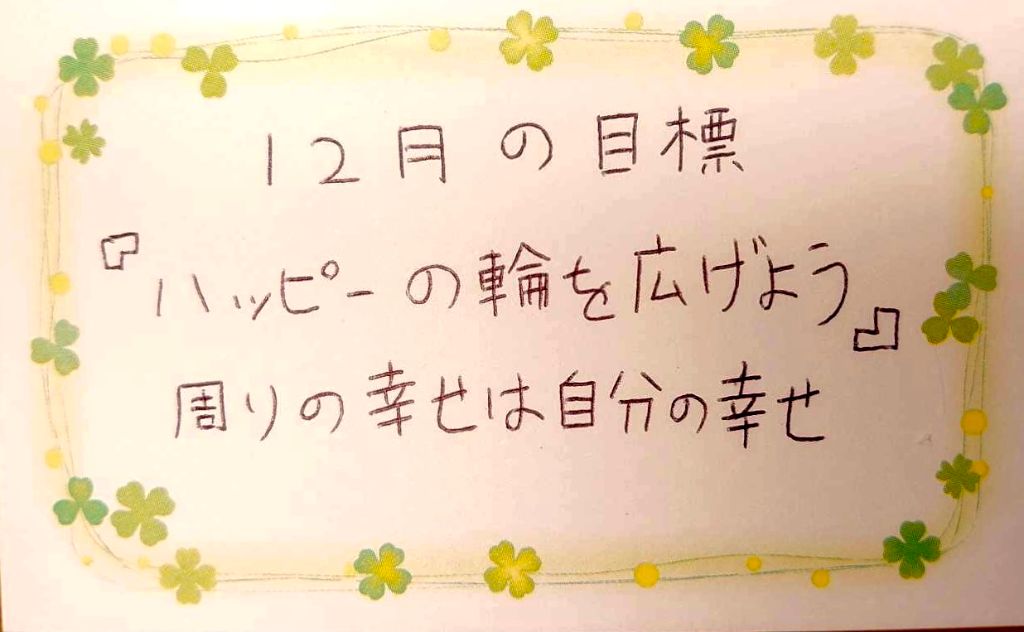 12月の目標
『ハッピーの輪を広げよう』
周りの幸せは自分の幸せ